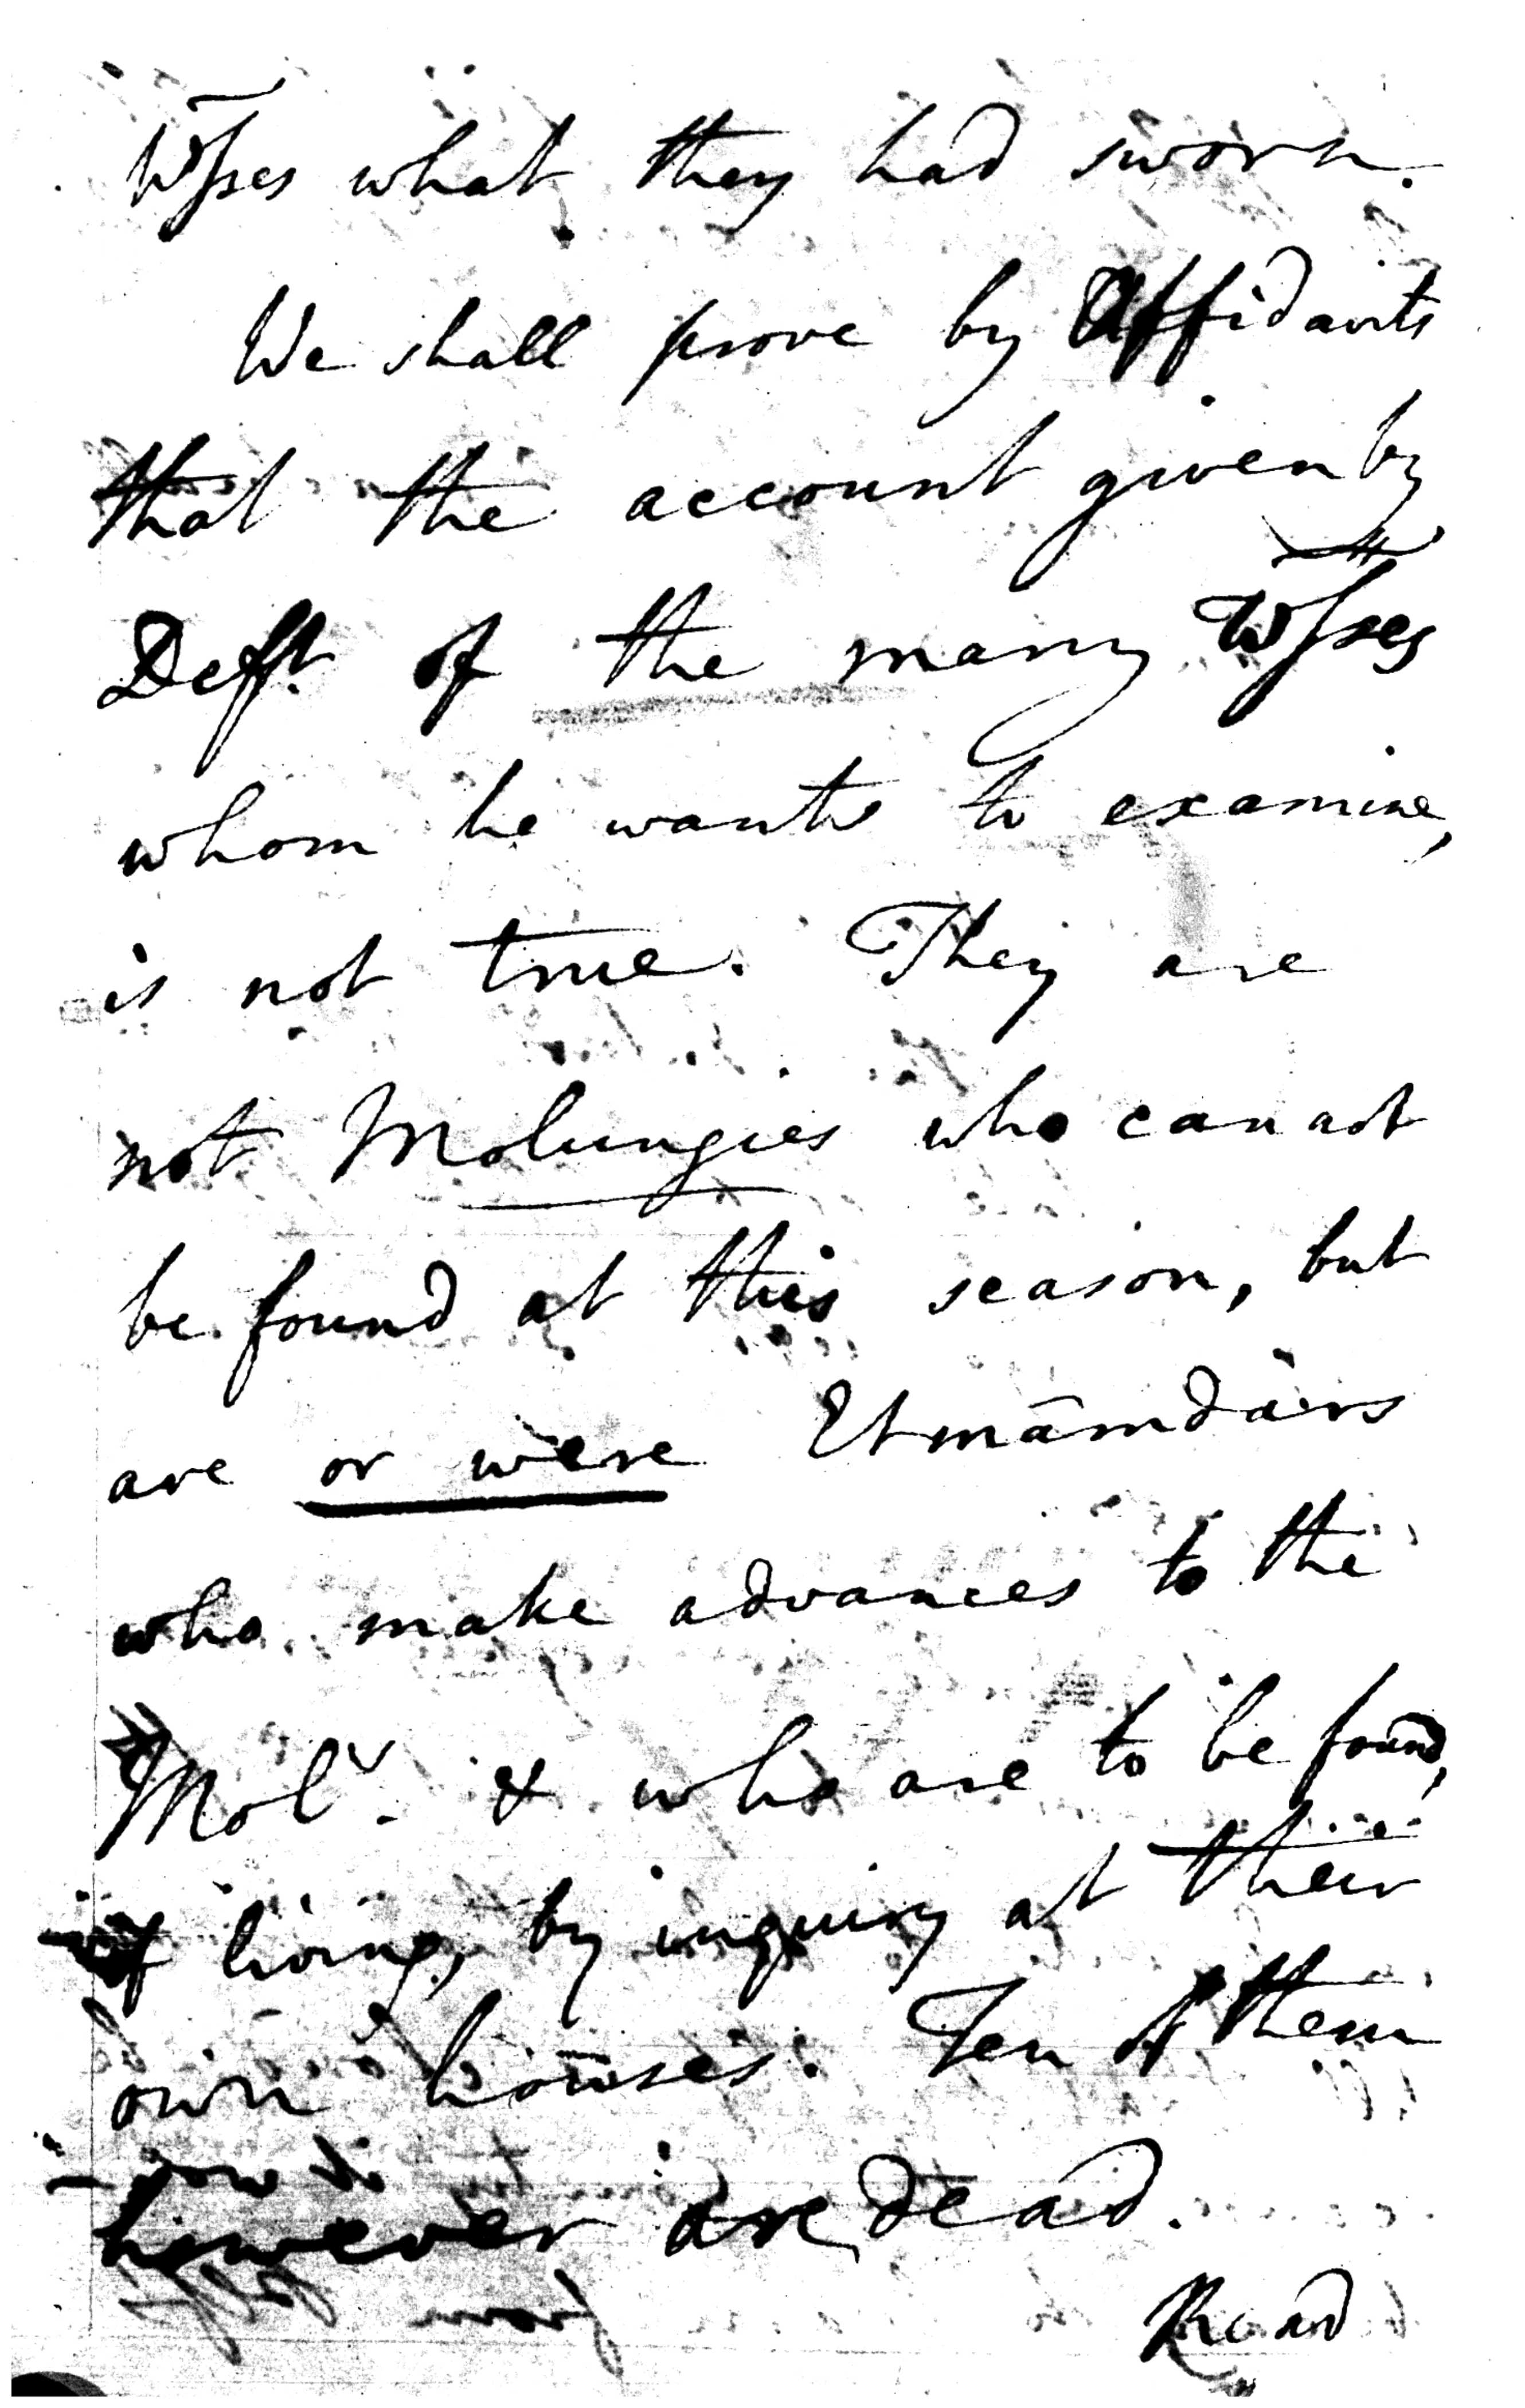 Wsses what they had sworn.
We shall prove by Affidavits
that the account given by
Deft. of the many Wsses
whom he wants to examine,
is not true. They are
not Molungies who can not
be found at this season, but
are or were Etmāmdārs
who make advances to the
Mol.s & who are to be found,
if living, by inquiry at their
own houses. Ten of them
however are dead.
Read